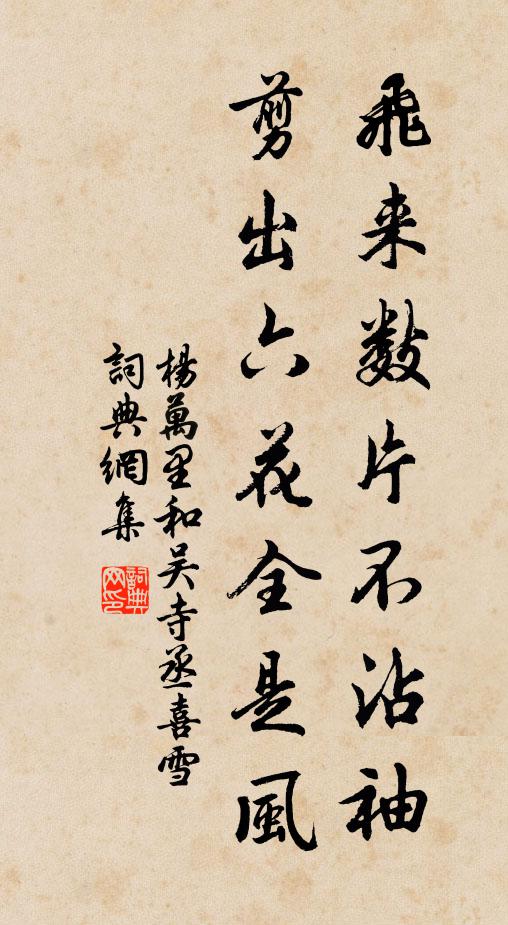 飛来數片不沾袖
剪出六花全是風
楊萬里和吴寺丞喜雪
詞典網集
詞典网印